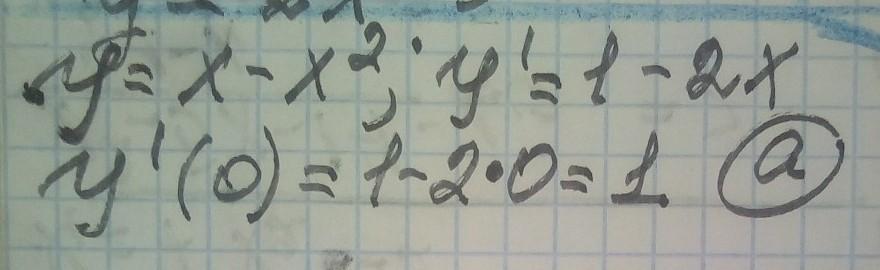 y = x - x²; y' = 1 - 2x
y'(0) = 1 - 2·0 = 1 a